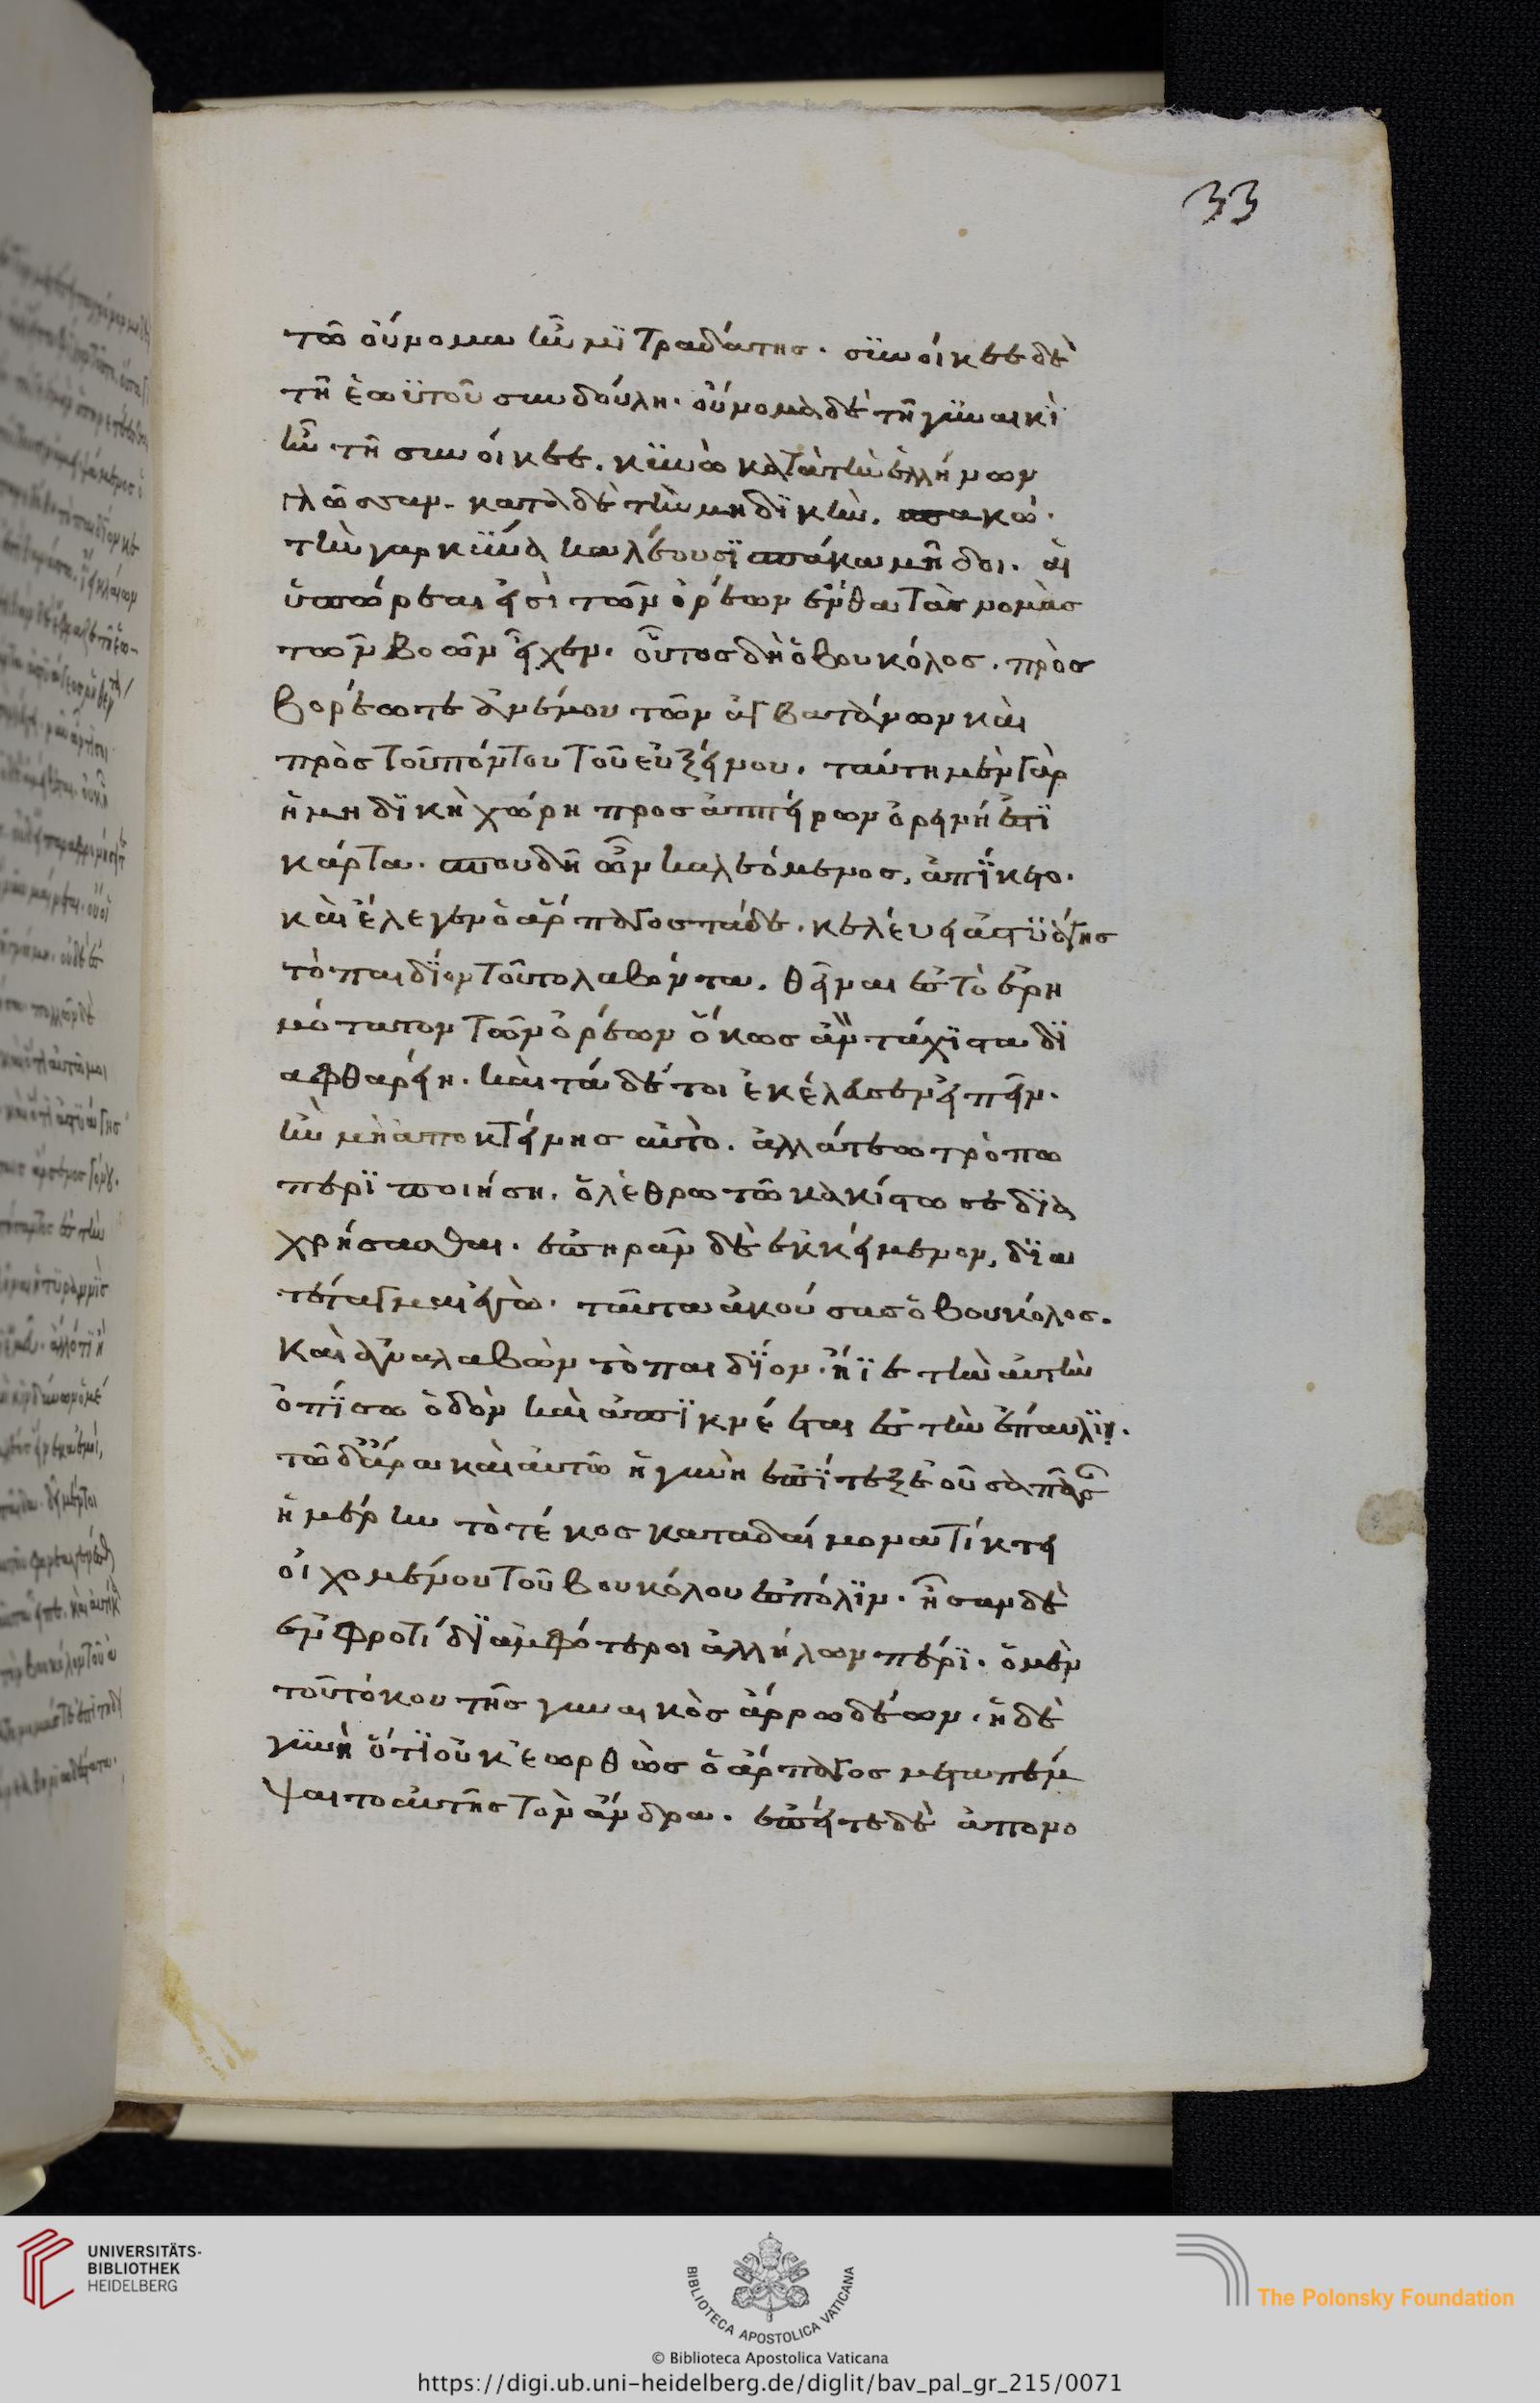 33
τῶ οὔνομα ἦν μϊτραδάτης. σϋνοίκεε δὲ
τῆ ἑωϋτοῦ συνδούλη. οὔνομα δὲ τῆ γϋναικὶ
ἦν τῆ συνοίκεε. κϋνὼ κατὰ τὴν ἑλλήνων
γλῶσσαν. κατὰ δὲ τὴν μηδϊκὴν. σπακώ.
τὴν γαρ κϋνα καλέουσϊ σπάκα μῆδοι. αἱ
ὑπώρεαι εἰσὶ τῶν ὀρέων ἔνθα τὰς νομὰς
τῶν βοῶν εἶχεν. οὗτος δὴ ὁ βουκόλος. πρὸς
βορέω τε ἀνέμου τῶν ἀγβατάνων καὶ
πρὸς τοῦ πόντου τοῦ εὐξείνου. ταύτη μὲν γὰρ
ἡ μηδϊκὴ χώρη προς ἀσπείρων ὀρεινή ἐστϊ
κάρτα. σπουδῆ ὦν καλεόμενος, ἀπΐκετο.
καὶ ἔλεγεν ὁ ἅρπαγος τάδε. κελέυει ἀστϋάγης
τὸ παιδΐον τοῦτο λαβόντα. θεῖναι ἐς τὸ ἐρη
μότατον τῶν ὀρέων ὅκως ἂν τάχϊστα δϊ
αφθαρείη. καὶ τά δέ τοι ἐκέλευσεν εἰπεῖν.
ἢν μὴ ἀποκτείνης αὐτὸ. ἀλλά τεω τρόπω
περϊποιήση. ὀλέθρω τῶ κακίστω σε δϊα
χρήσασθαι. ἐπηρᾶν δὲ ἐκκείμενον, δϊα
τέταγμαι ἐγὼ. ταῦτα ἀκούσας ὁ βουκόλος.
καὶ ἀναλαβὼν τὸ παιδΐον. ἤϊε τὴν αὐτὴν
ὀπΐσω ὁδὸν καὶ ἀπϊκνέεται ἐς τὴν ἔπαυλϊν.
τῶ δ' ἄρα καὶ αὐτῶ ἡ γυνὴ ἐπΐτεξ ἐοῦσα πᾶσαν
ἡμέρην τὸτέ κος καταδαίμονα τίκτει
οἰχομένου τοῦ βουκόλου ἐς πόλϊν. ἦσαν δὲ
ἐν φροτίδϊ ἀμφότεροι ἀλλήλων πέρϊ. ὁ μὲν
τοῦ τόκου τῆς γυναικὸς ἀρρωδέων. ἡ δὲ
γϋνὴ ὅτϊ οὐκ ἐωρθὼς ὁ ἅρπαγος μεταπέμ
ψαιτο αὐτῆς τὸν ἄνδρα. ἐπείτε δὲ ἀπονο
UNIVERSITÄTS-
BIBLIOTHEK
HEIDELBERG
BIBLIOTECA APOSTOLICA VATICANA
The Polonsky Foundation
© Biblioteca Apostolica Vaticana
https://digi.ub.uni-heidelberg.de/diglit/bav_pal_gr_215/0071